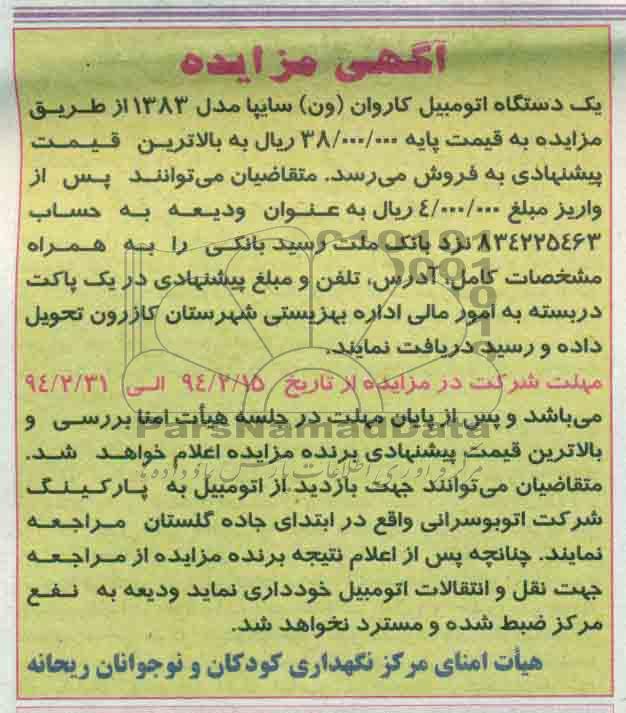 آگهی مزایده
یک دستگاه اتومبیل کاروان (ون) سایپا مدل ۱۳۸۳ از طریق
مزایده به قیمت پایه ۳۸/۰۰۰/۰۰۰ ریال به بالاترین قیمت
پیشنهادی به فروش می‌رسد. متقاضیان می‌توانند پس از
واریز مبلغ ٤/۰۰۰/۰۰۰ ریال به عنوان ودیعه به حساب
۸۳٤۲۲۵٤۶۳ نزد بانک ملت رسید بانکی را به همراه
مشخصات کامل، آدرس، تلفن و مبلغ پیشنهادی در یک پاکت
دربسته به امور مالی اداره بهزیستی شهرستان کازرون تحویل
داده و رسید دریافت نمایند.
مهلت شرکت در مزایده از تاریخ ۹٤/۲/۱۵ الی ۹٤/۲/۳۱
می‌باشد و پس از پایان مهلت در جلسه هیأت امنا بررسی و
بالاترین قیمت پیشنهادی برنده مزایده اعلام خواهد شد.
متقاضیان می‌توانند جهت بازدید از اتومبیل به پارکینگ
شرکت اتوبوسرانی واقع در ابتدای جاده گلستان مراجعه
نمایند. چنانچه پس از اعلام نتیجه برنده مزایده از مراجعه
جهت نقل و انتقالات اتومبیل خودداری نماید ودیعه به نفع
مرکز ضبط شده و مسترد نخواهد شد.
هیأت امنای مرکز نگهداری کودکان و نوجوانان ریحانه
ParsNamadData